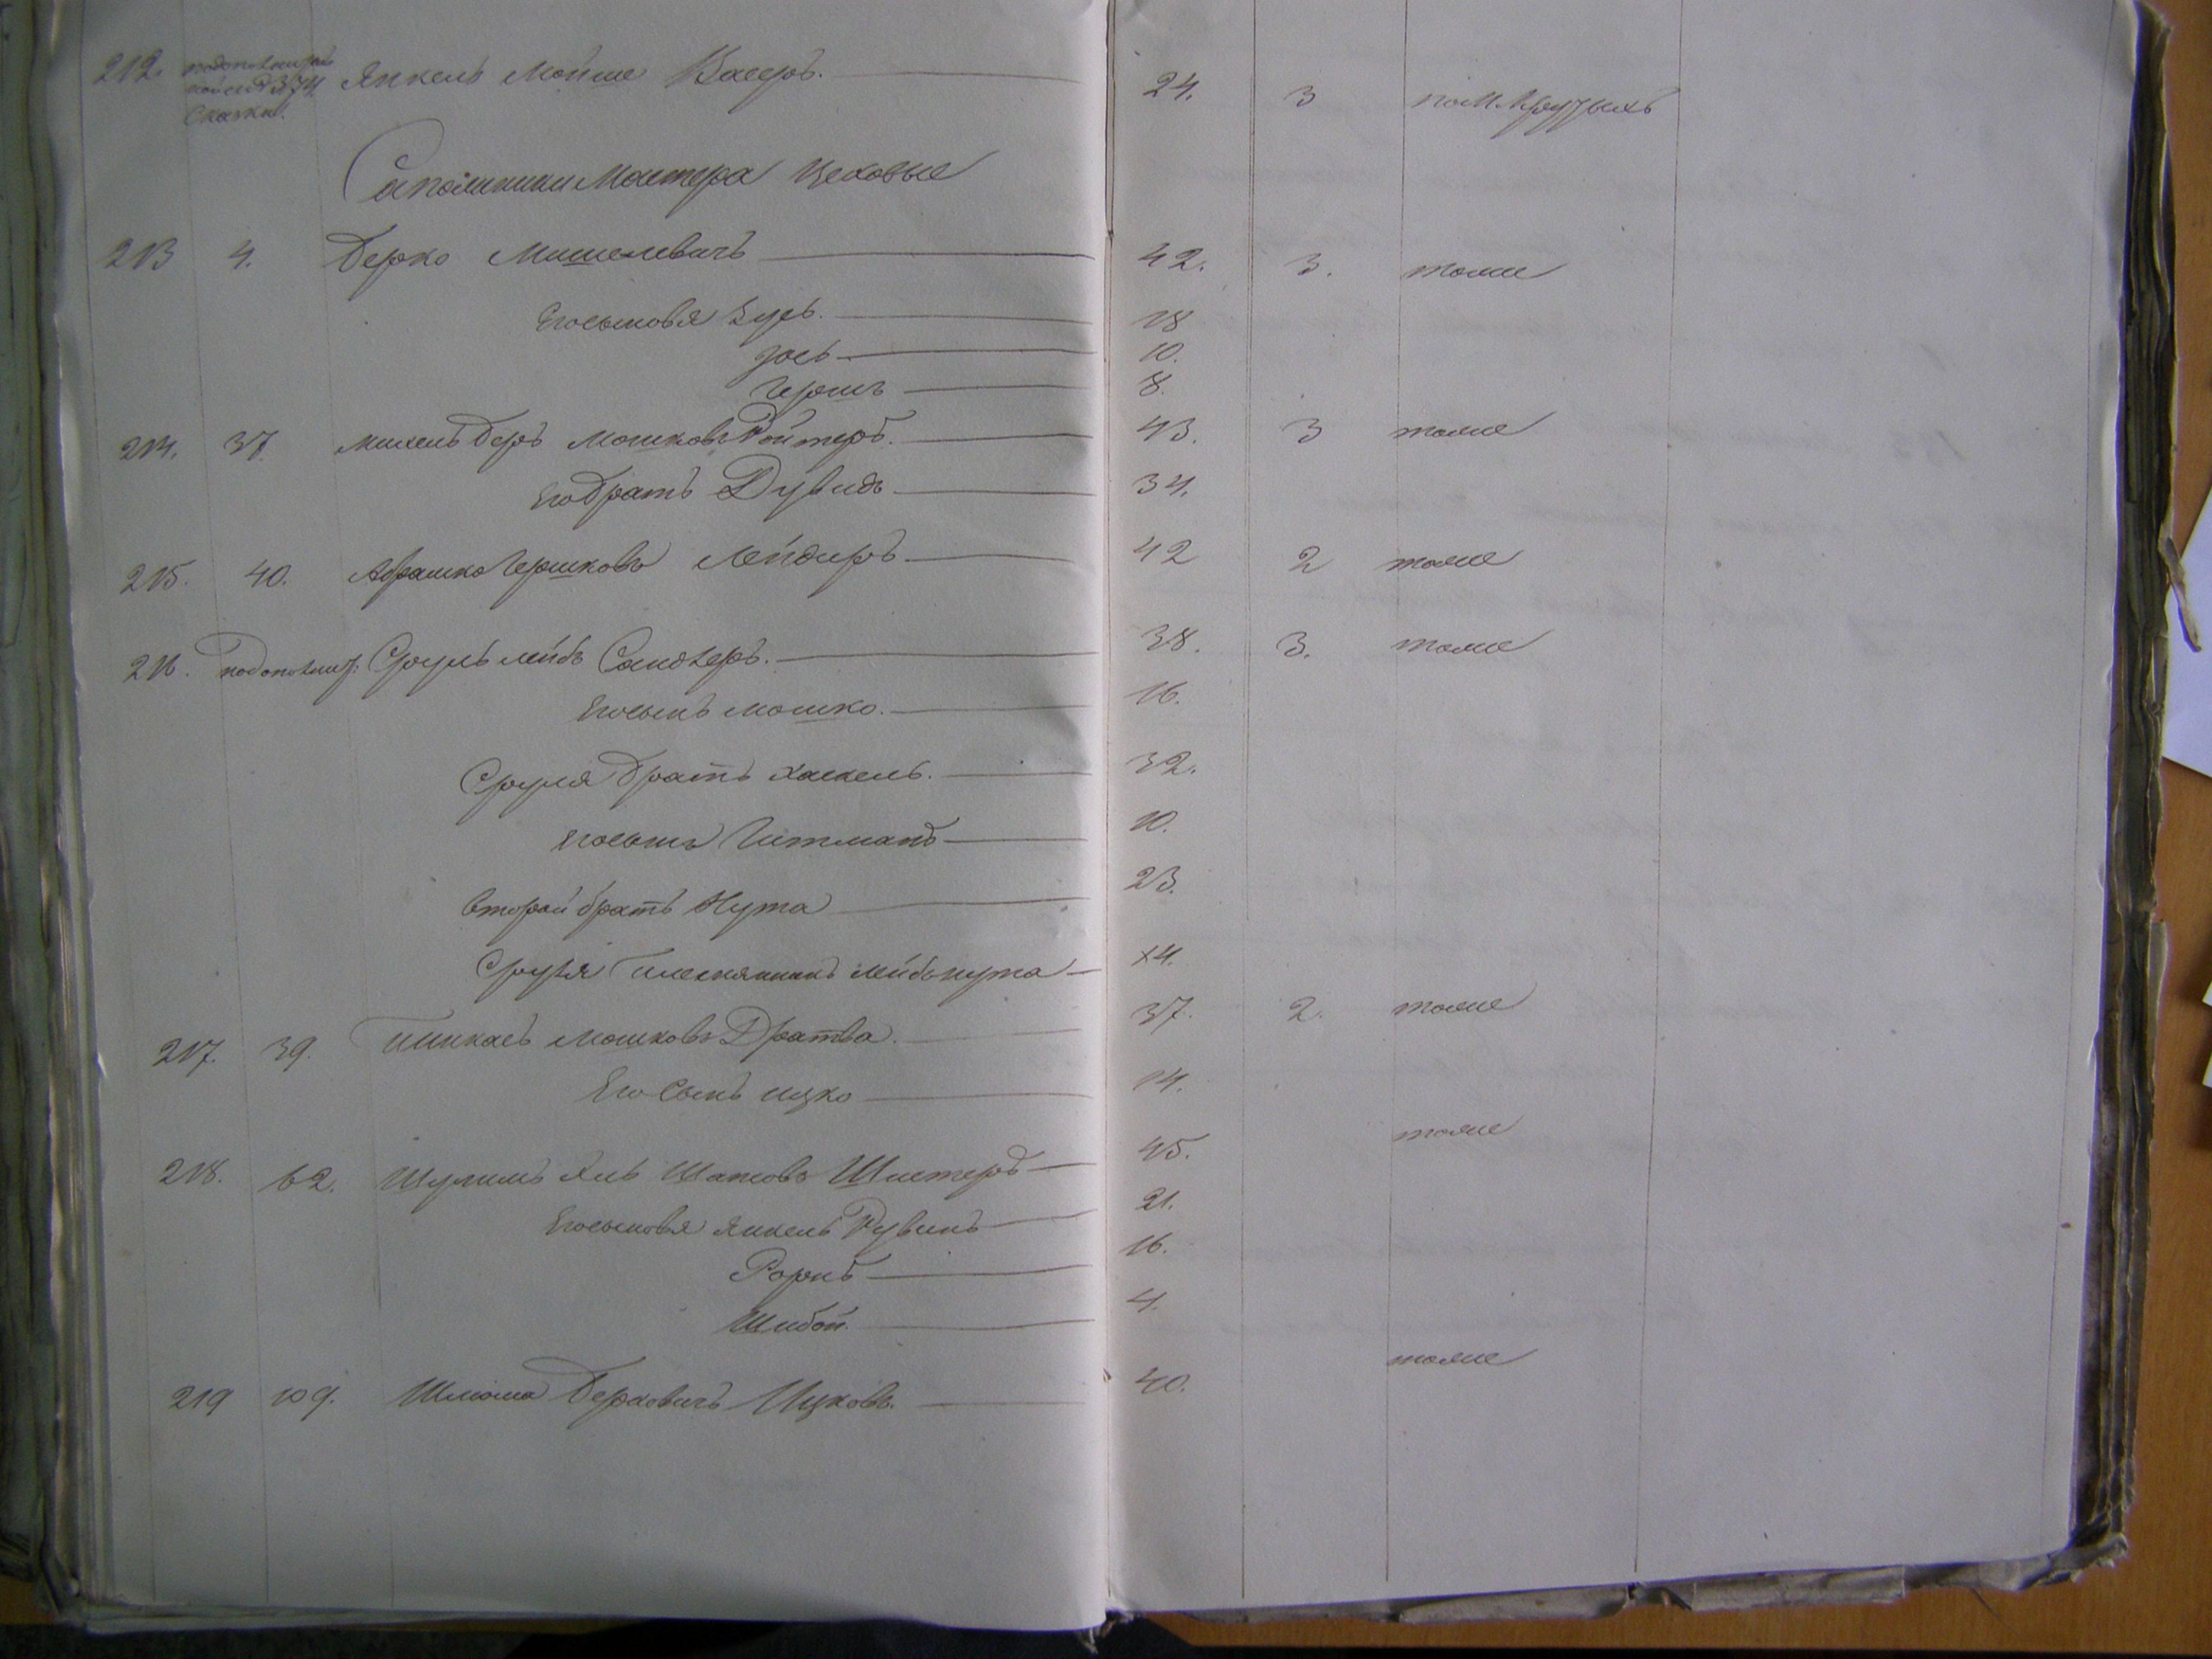 212. Янкель Мойше Васеръ. 24. 3
Сказки.
Сапожники Мастера Цеховые
213 4. Берко Мошелевичъ 42. 3. тоже
Егосыновья Зусь. 18
Іось 10.
Гершъ 8.
214. 37. Михель Беръ Мошковъ Ройтеръ. 43. 3 тоже
Егобратъ Дувидъ 34.
215. 40. Абрашко Гершковъ Лейдеръ 42 2 тоже
216. Сруль Лейбъ Сандлеръ. 38. 3. тоже
Егосынъ Мошко. 16.
Сруля братъ Хаскель. 32.
Егосынъ Гитманъ 10.
Второй братъ Нута 23.
Сруля племянникъ Лейбь нута 14.
217. 39. Пинкасъ Мошковъ Дратва. 37. 2. тоже
Его Сынъ Ицко 14.
218. 62. Шулимъ Шистеръ 45. тоже
Егосыновья Янкель Рувинъ 21.
16.
4.
219 109. Шлиома Берковичъ Ицковъ. 40. тоже